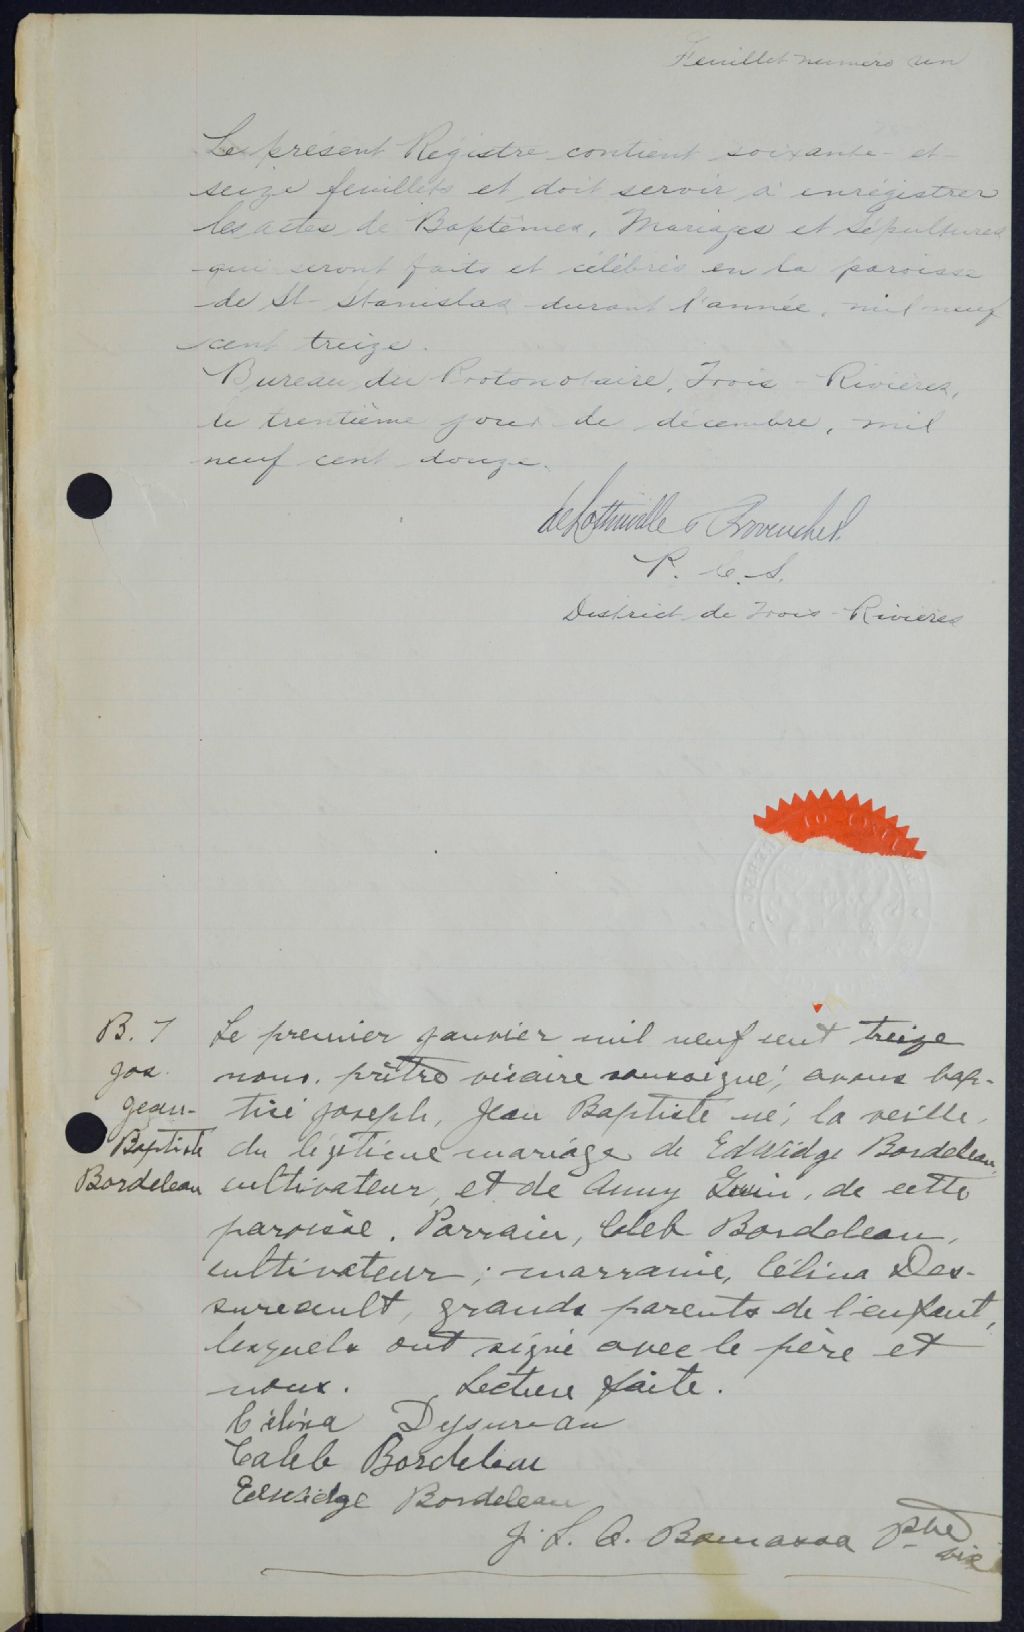 Feuillet numéro un
Le présent Régistre contient soixante-et-
seize feuillets et doit servir à enrégistrer
les actes de Baptêmes, Mariages et Sépultures
qui seront faits et célébrés en la paroisse
de St-Stanislas durant l'année, mil neuf
cent treize.
Bureau du Protonotaire, Trois-Rivières,
le trentième jour de décembre, mil
neuf cent douze.
deLottinville & Provencher
P. C. S.
District de Trois-Rivières
B. 1
Jos.
Jean-
Baptiste
Bordeleau
Le premier janvier mil neuf cent treize
nous, prêtre vicaire soussigné, avons bap-
tisé Joseph, Jean Baptiste né, la veille,
du légitime mariage de Edwidge Bordeleau,
cultivateur, et de Anny, de cette
paroisse. Parrain, Caleb Bordeleau,
cultivateur; marraine, Célina Des-
sureault, grands parents de l'enfant,
lesquels ont signé avec le père et
nous. Lecture faite.
Célina Dysureau
Caleb Bordeleau
Edwidge Bordeleau
J. L. A. ptre
vic